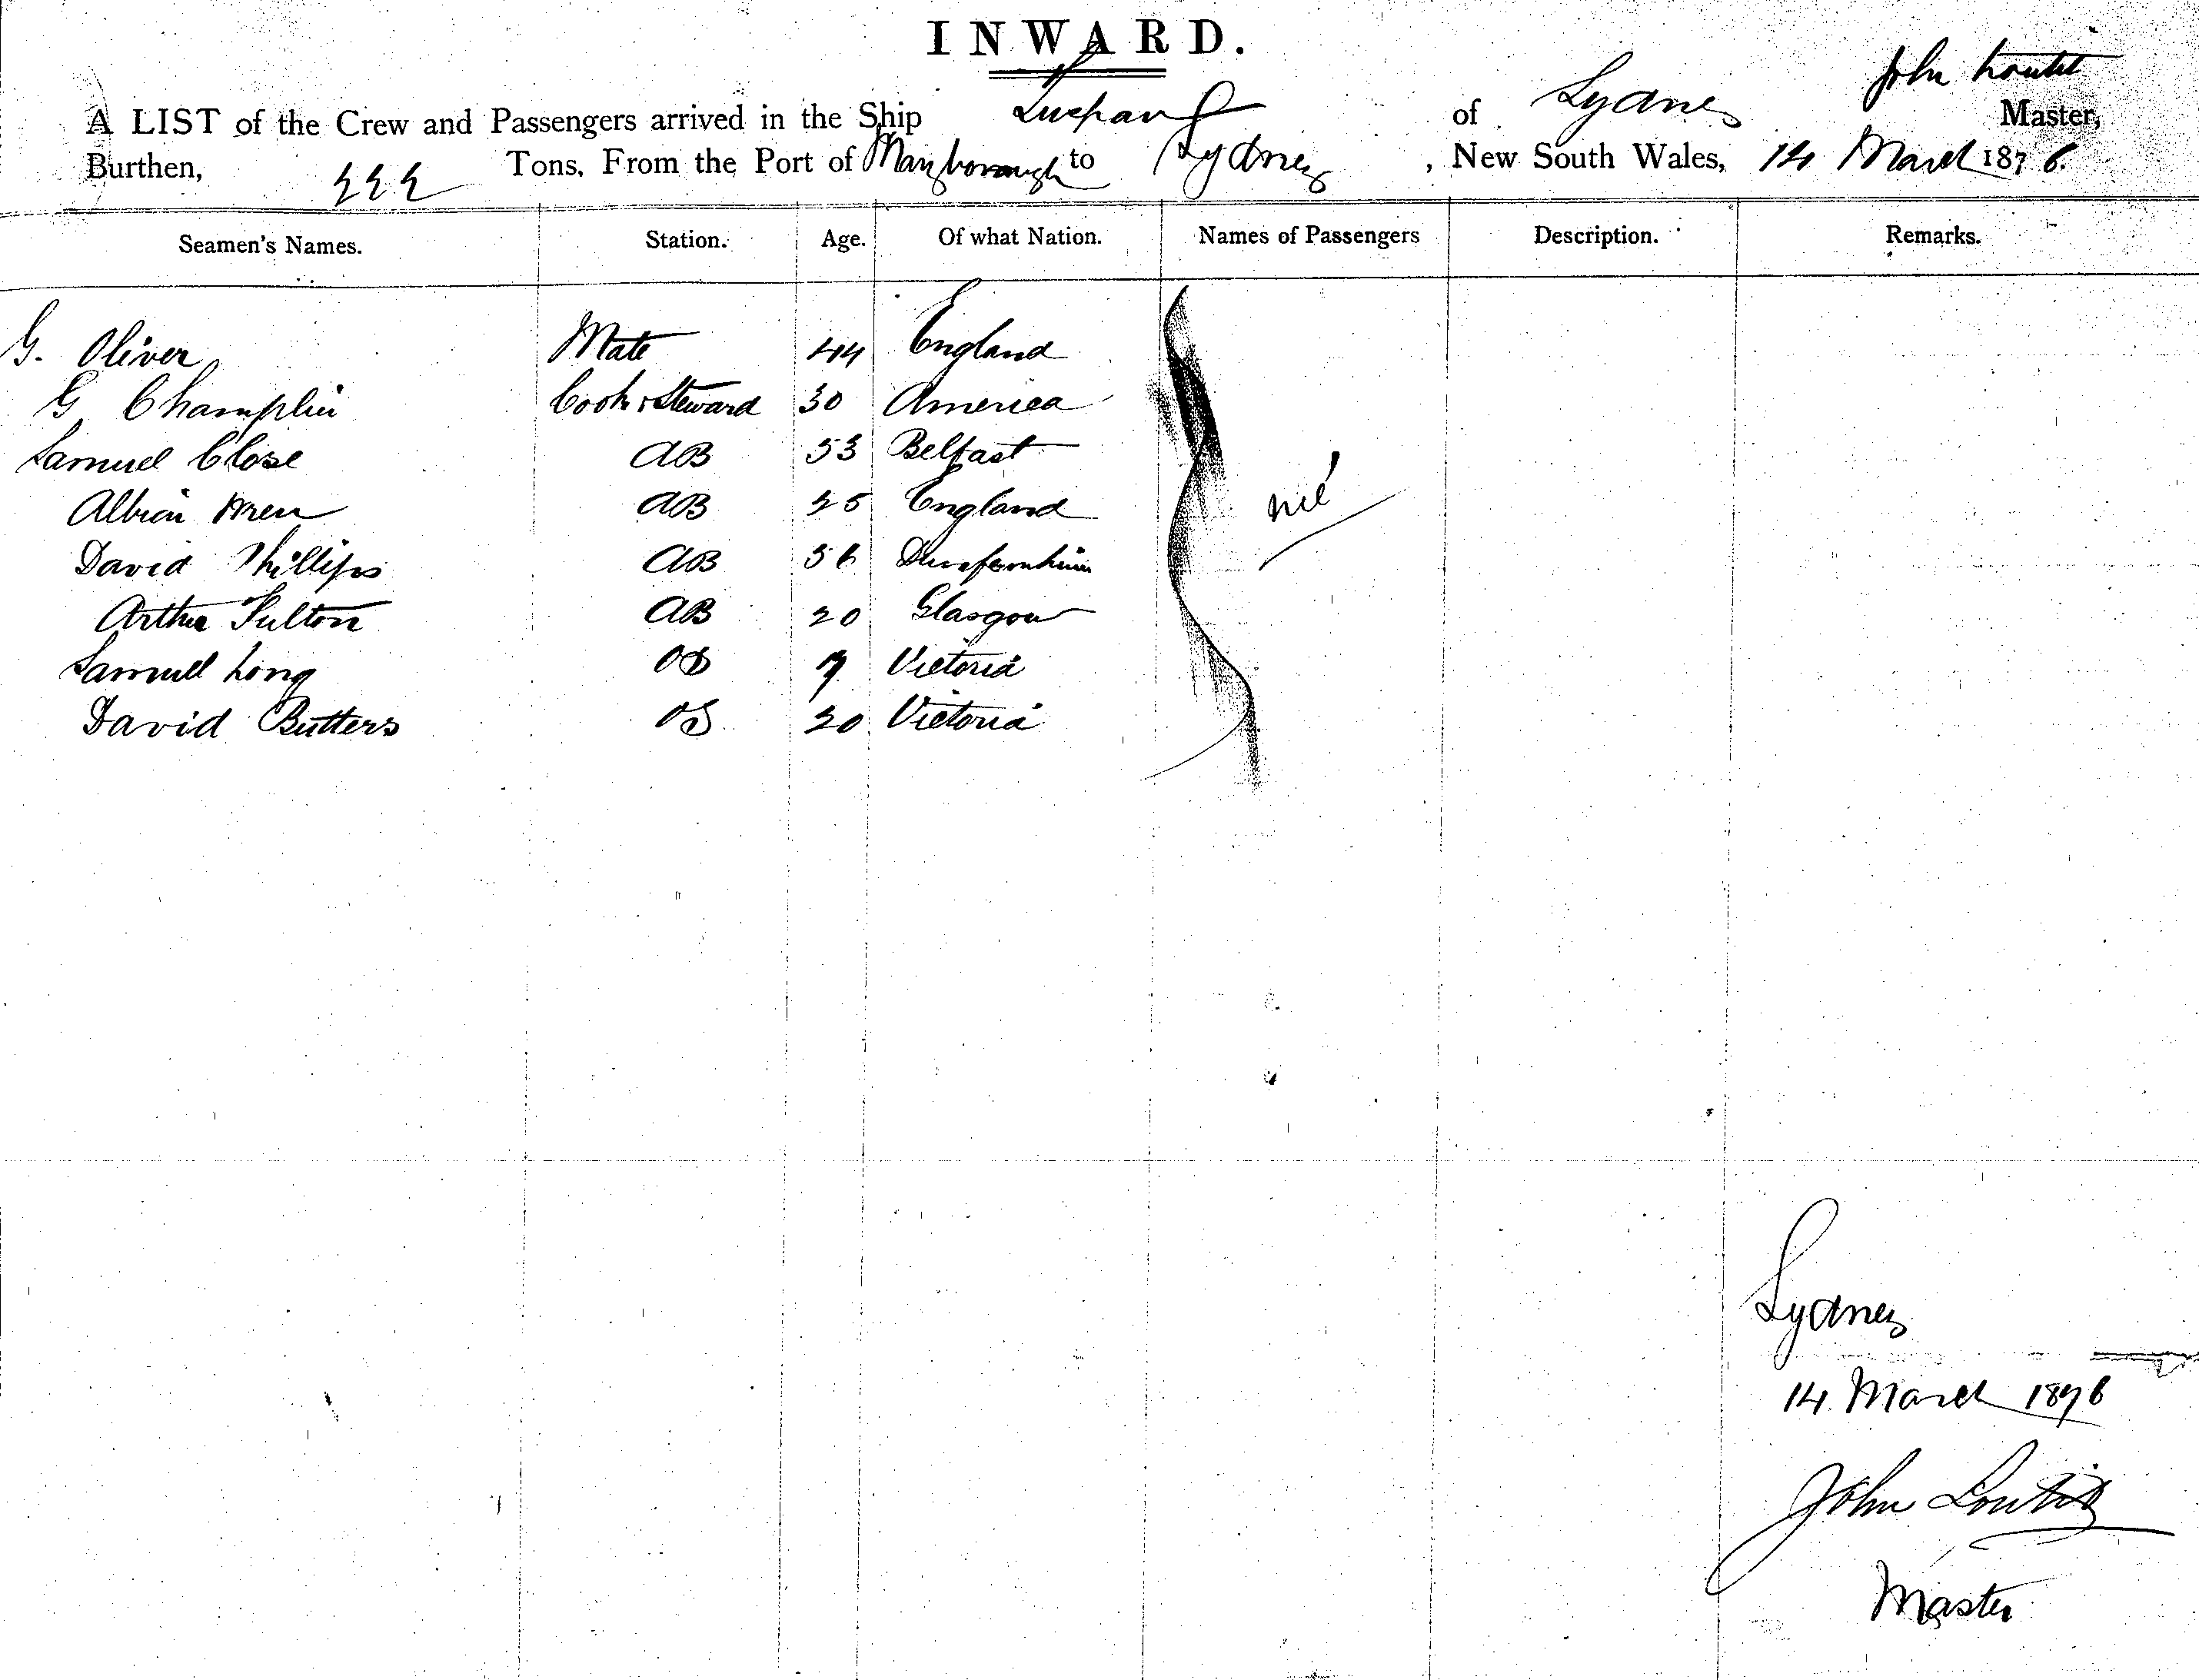 INWARD.
John Loutit
A LIST of the Crew and Passengers arrived in the Ship of Sydney Master,
Burthen, 222 Tons, From the Port of Maryborough to Sydney, New South Wales, 14 March 1876.
Seamen's Names. Station. Age. Of what Nation. Names of Passengers Description. Remarks.
G. Oliver Mate 44 England
G Champlin Cook & Steward 30 America
Samuel Close AB 53 Belfast
Albion Wren AB 25 England nil
David Phillips AB 36
Arthur Fulton AB 20 Glasgow
Samuel Long OS Victoria
David Butters OS 20 Victoria
Sydney
14 March 1876
John Loutit
Master